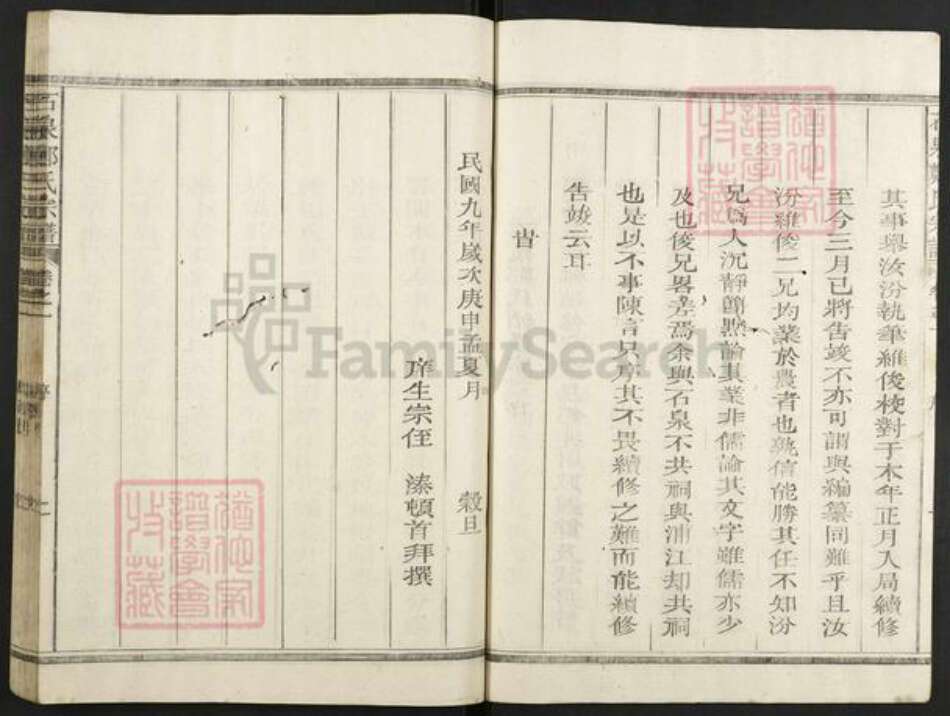 其事舉汝汾執筆維俊校對于本年正月入局續修
至今三月已將告竣不亦可謂與編纂同難乎且汝
汾維俊二兄均業於農者也孰信能勝其任不知汾
兄為人沉靜簡默論其業非儒論其文字雖儒亦少
及也俊兄畧差焉余與石泉不共祠與浦江却共祠
也是以不事陳言只序其不畏續修之難而能續修
告竣云耳
旹
民國九年歲次庚申孟夏月 穀旦
庠生宗侄 溱頓首拜撰
石泉鄭氏宗譜 卷之一
序
FamilySearch
譜學會
收藏